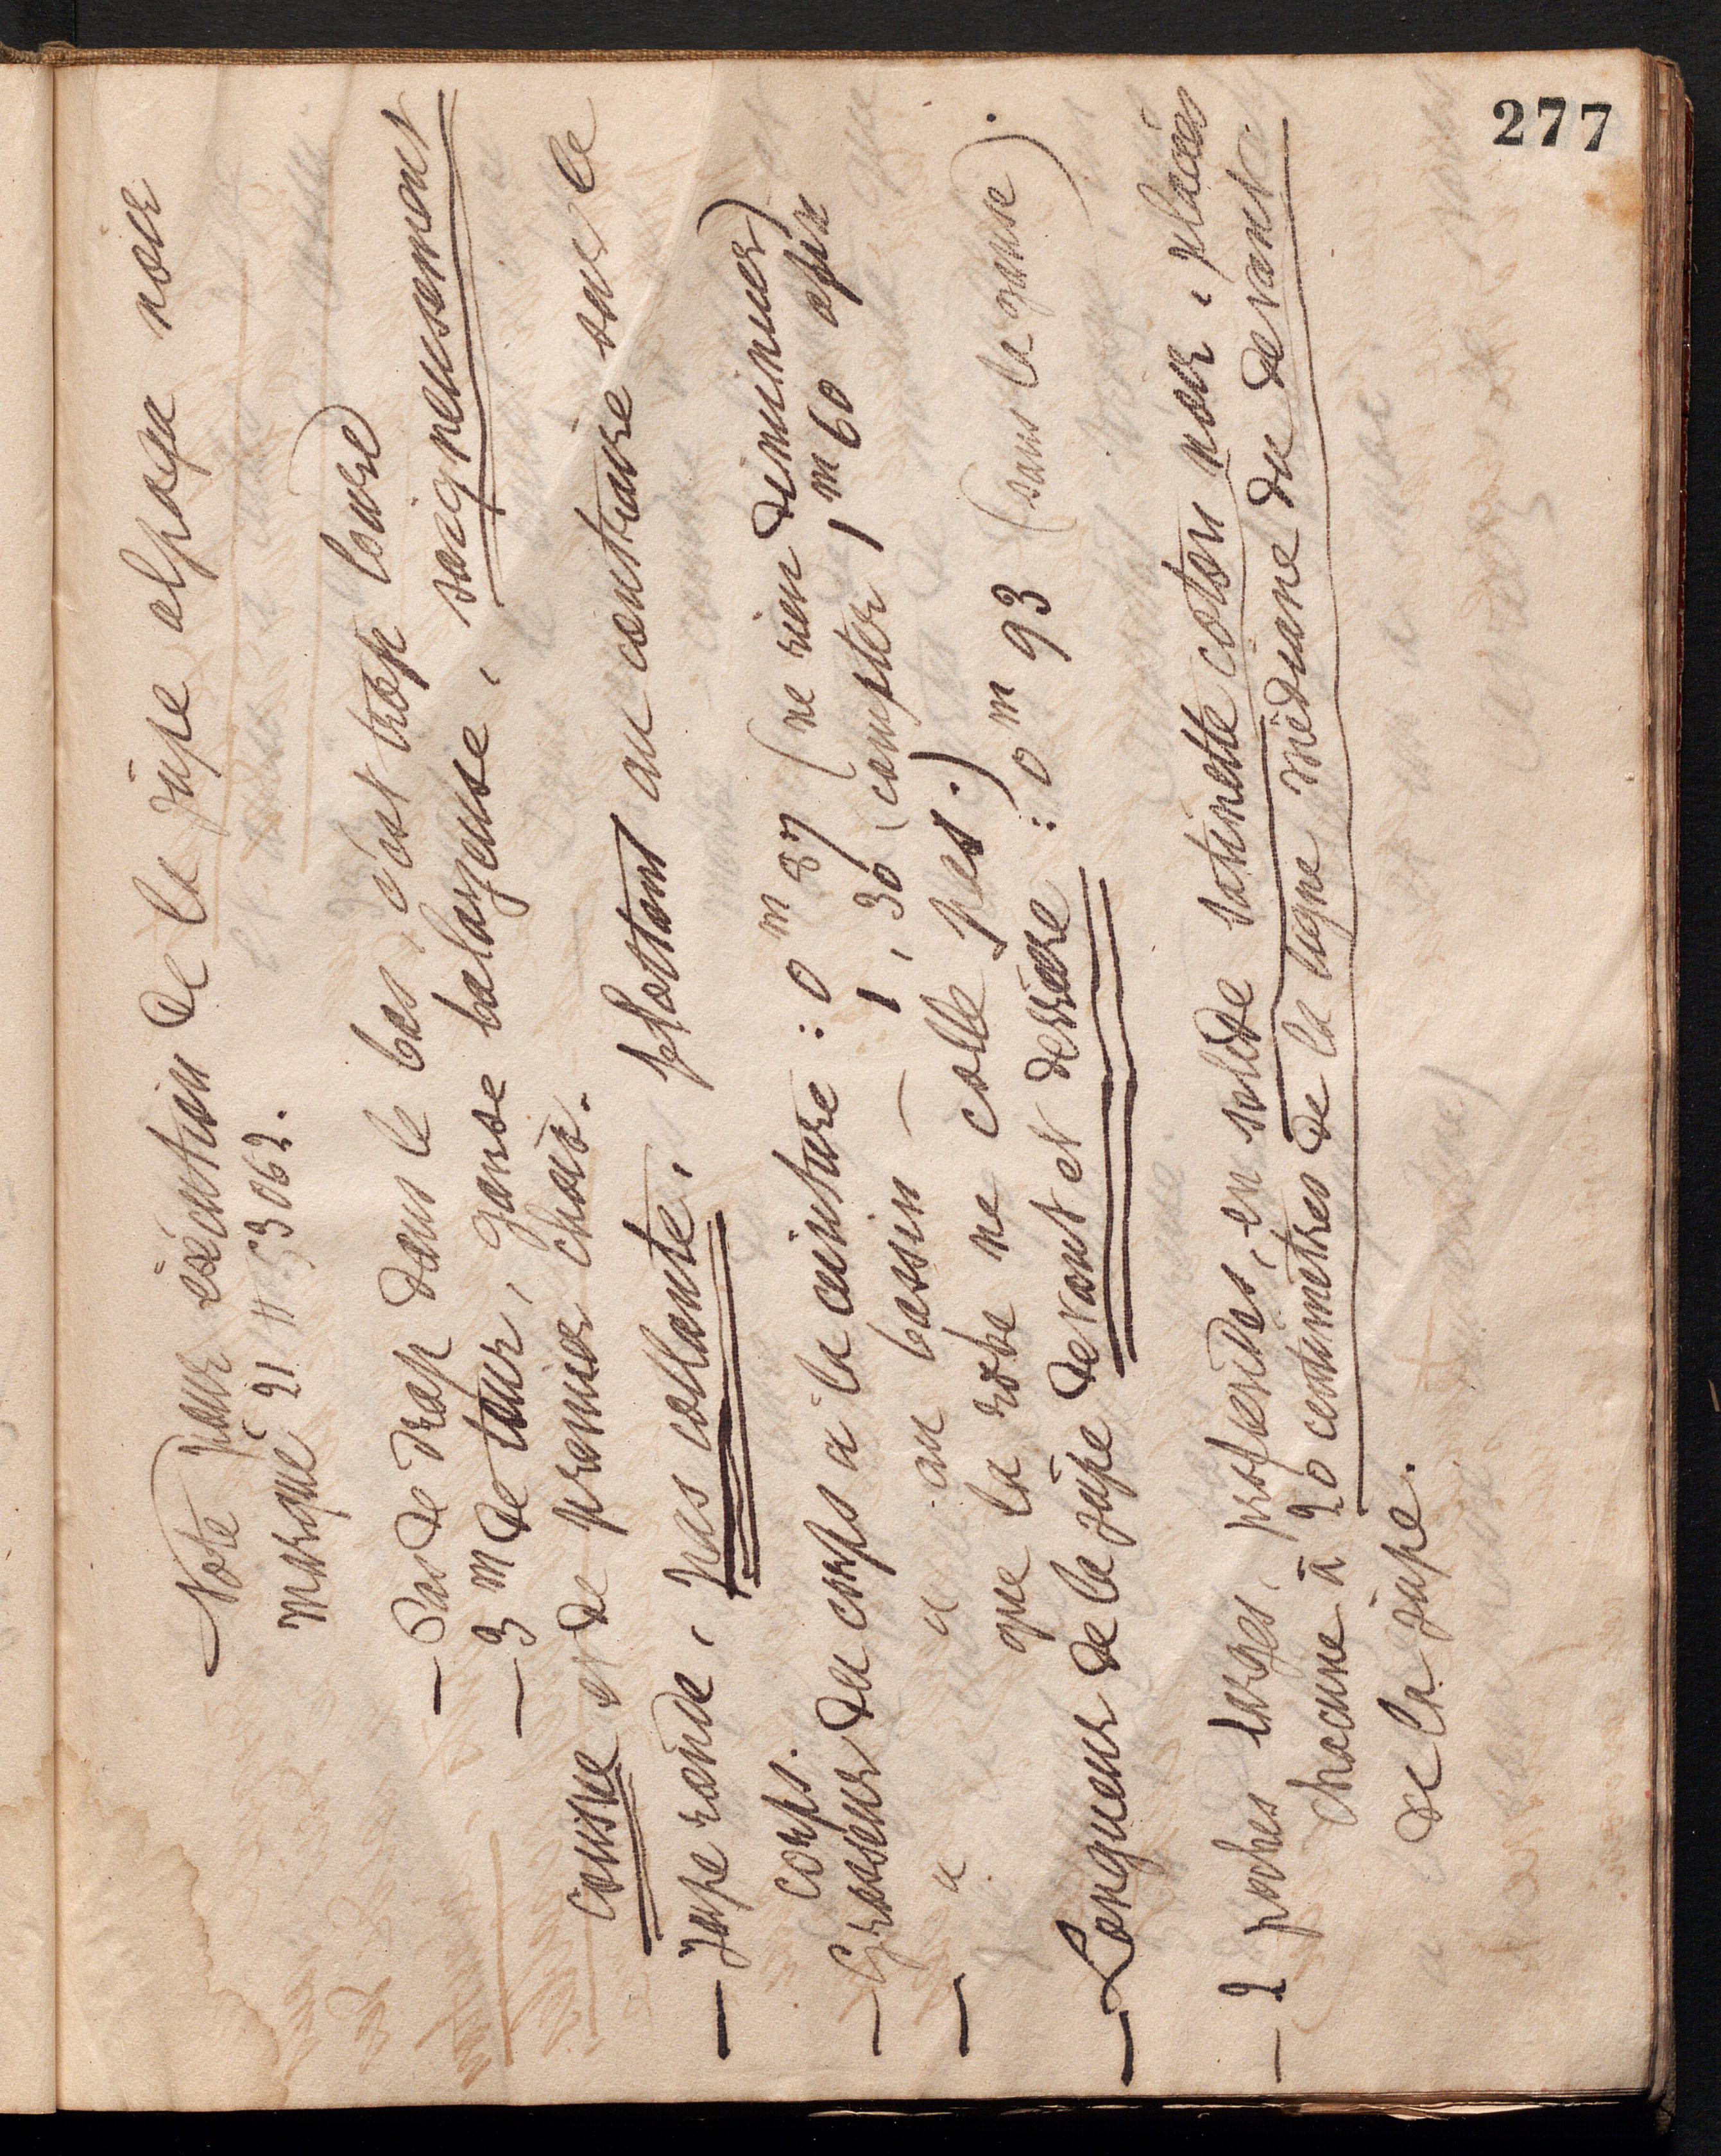 277
Note pour exécution de la jupe alpaga noir
marqué 21 # 53062.
— Pas de drap dans le bas, c'est trop lourd
— 3 m de tour, ganse balayeuse, soigneusement
cousue et de premier choix.
— Jupe ronde, pas collante, flottant au contraire sur le
corps.
— Grosseur du corps à la ceinture : 0 m 87 (ne rien diminuer)
— " " au bassin — 1, 30 (compter 1 m 60 afin
que la robe ne colle pas.)
— Longueur de la jupe devant et derrière : 0 m 93 (sans la ganse).
— 2 poches larges, profondes, en solide satinette coton noir, placées
chacune à 20 centimètres de la ligne médiane du devant
de la jupe.